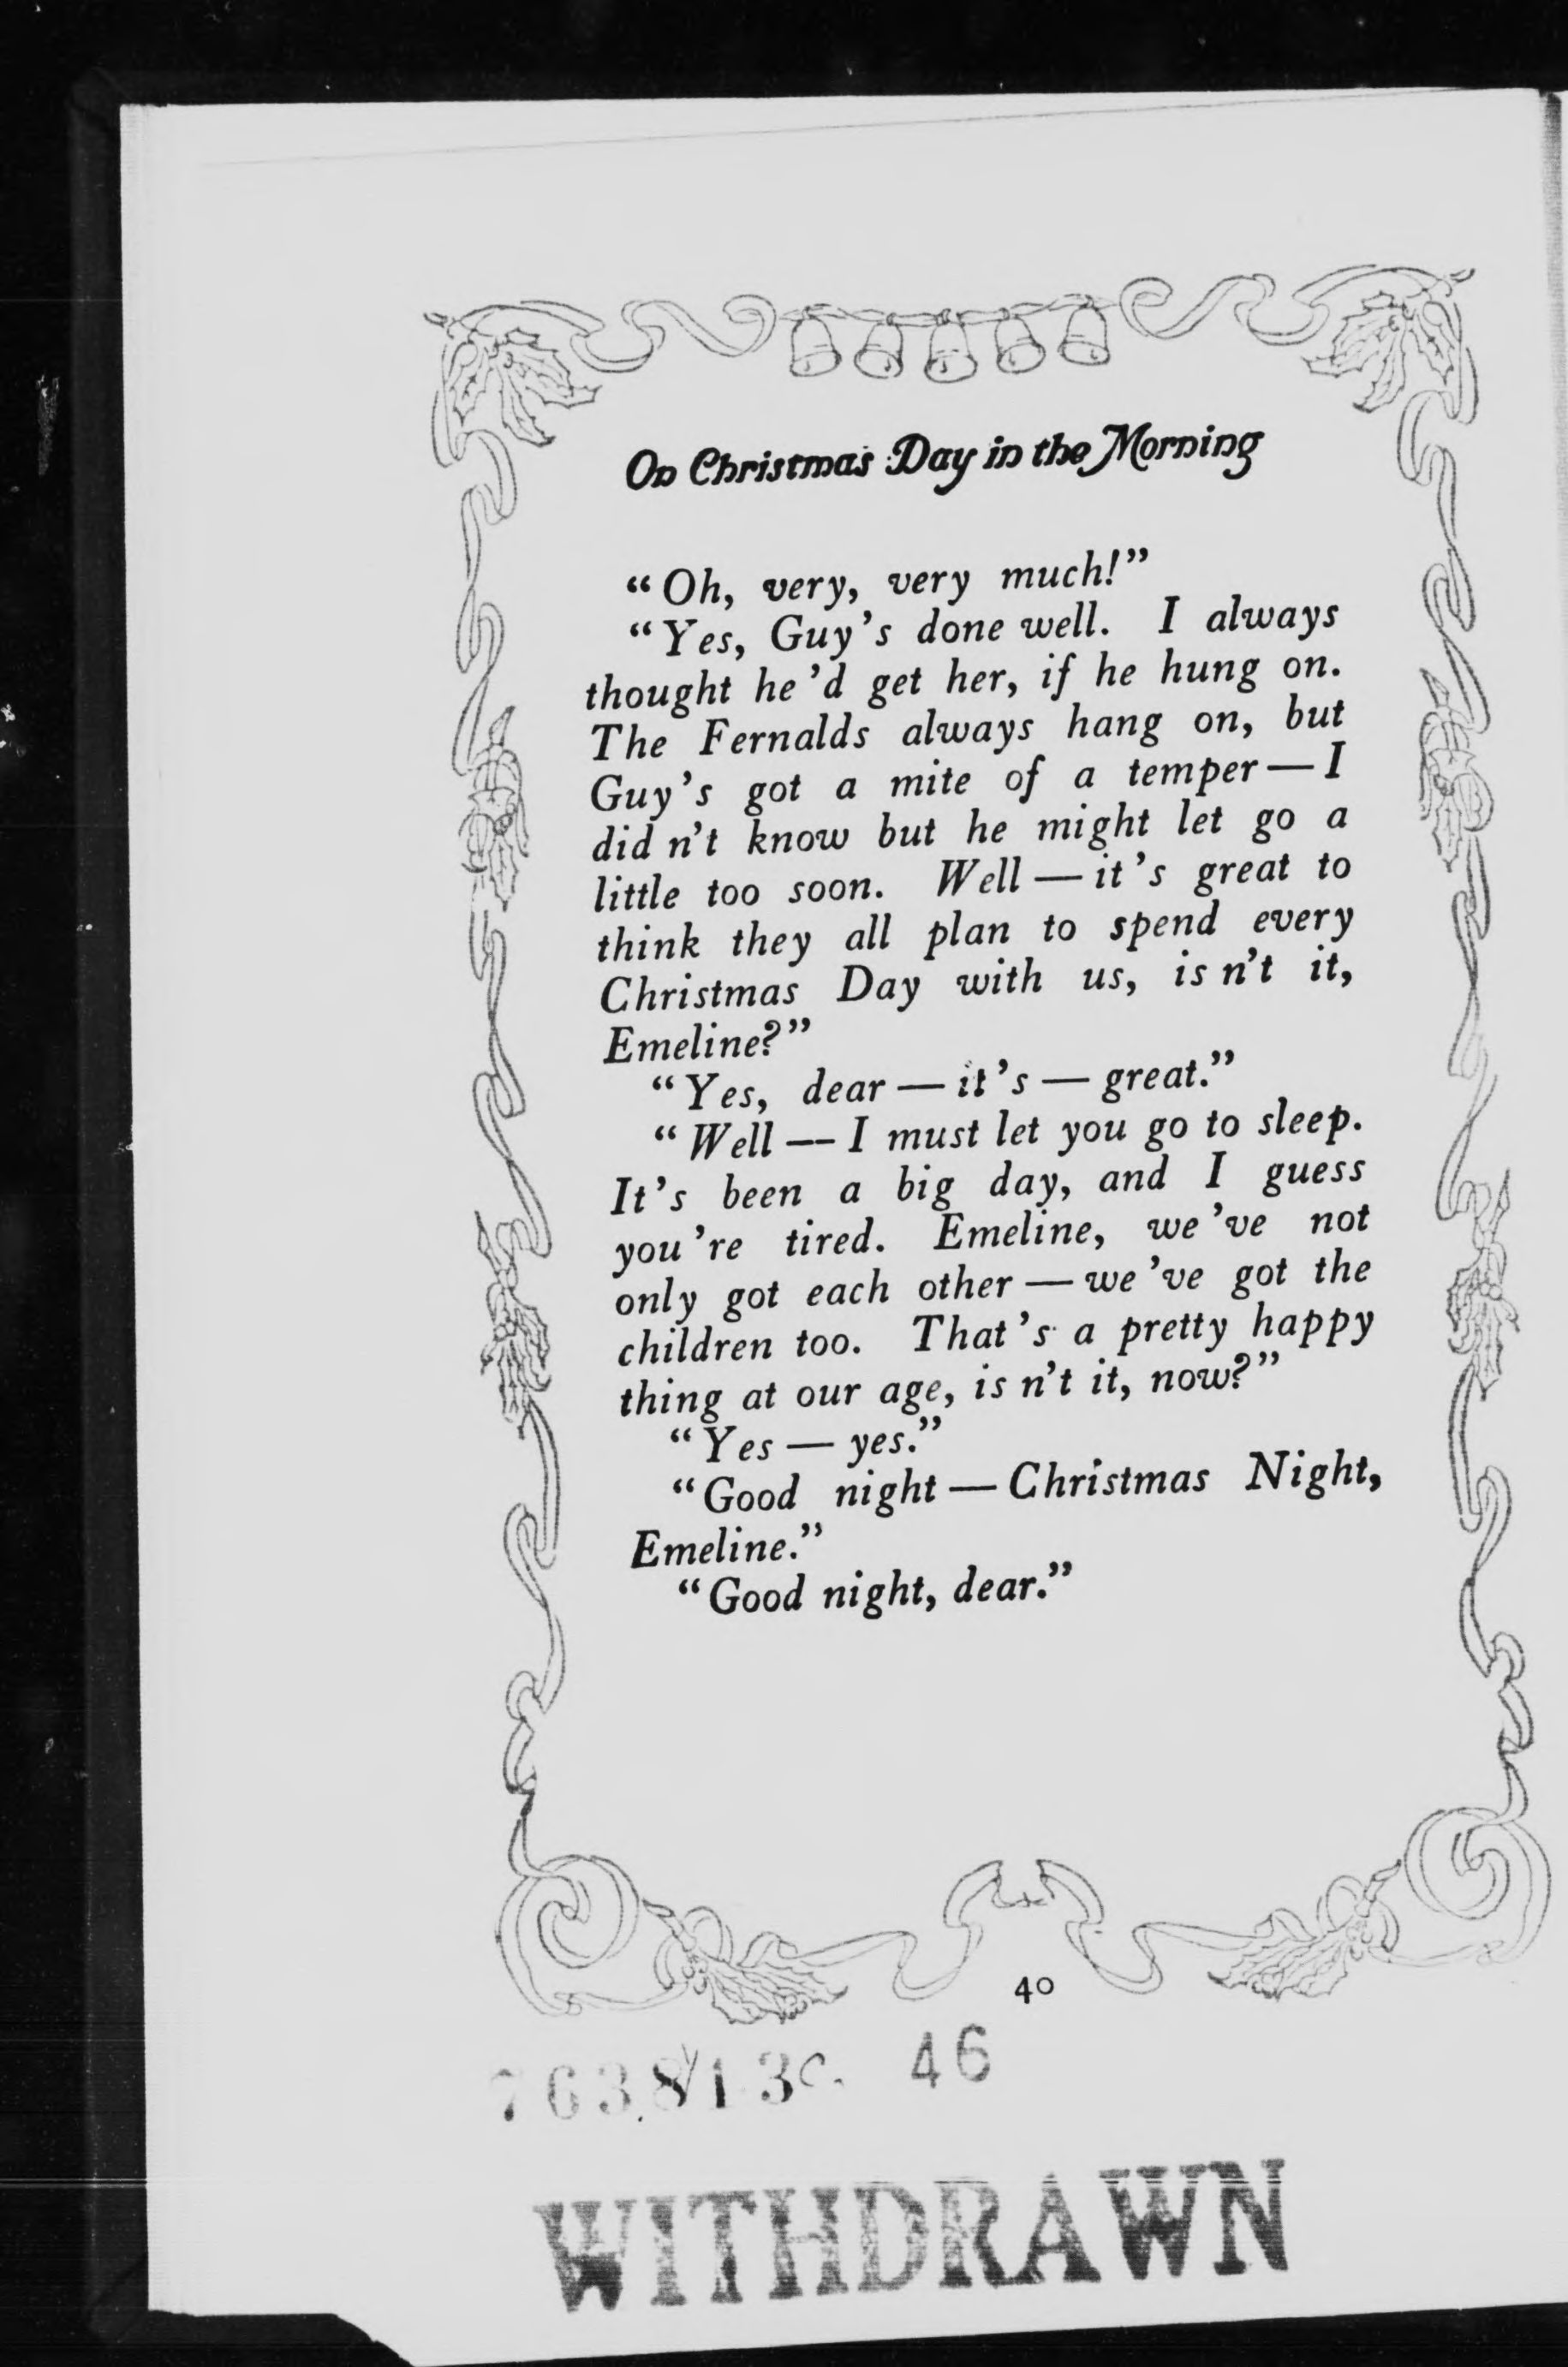 On Christmas Day in the Morning
“Oh, very, very much!”
“Yes, Guy’s done well. I always
thought he’d get her, if he hung on.
The Fernalds always hang on, but
Guy’s got a mite of a temper—I
did n’t know but he might let go a
little too soon. Well—it’s great to
think they all plan to spend every
Christmas Day with us, is n’t it,
Emeline?”
“Yes, dear—it’s—great.”
“Well—I must let you go to sleep.
It’s been a big day, and I guess
you’re tired. Emeline, we’ve not
only got each other—we’ve got the
children too. That’s a pretty happy
thing at our age, is n’t it, now?”
“Yes—yes.”
“Good night—Christmas Night,
Emeline.”
“Good night, dear.”
40
46
WITHDRAWN